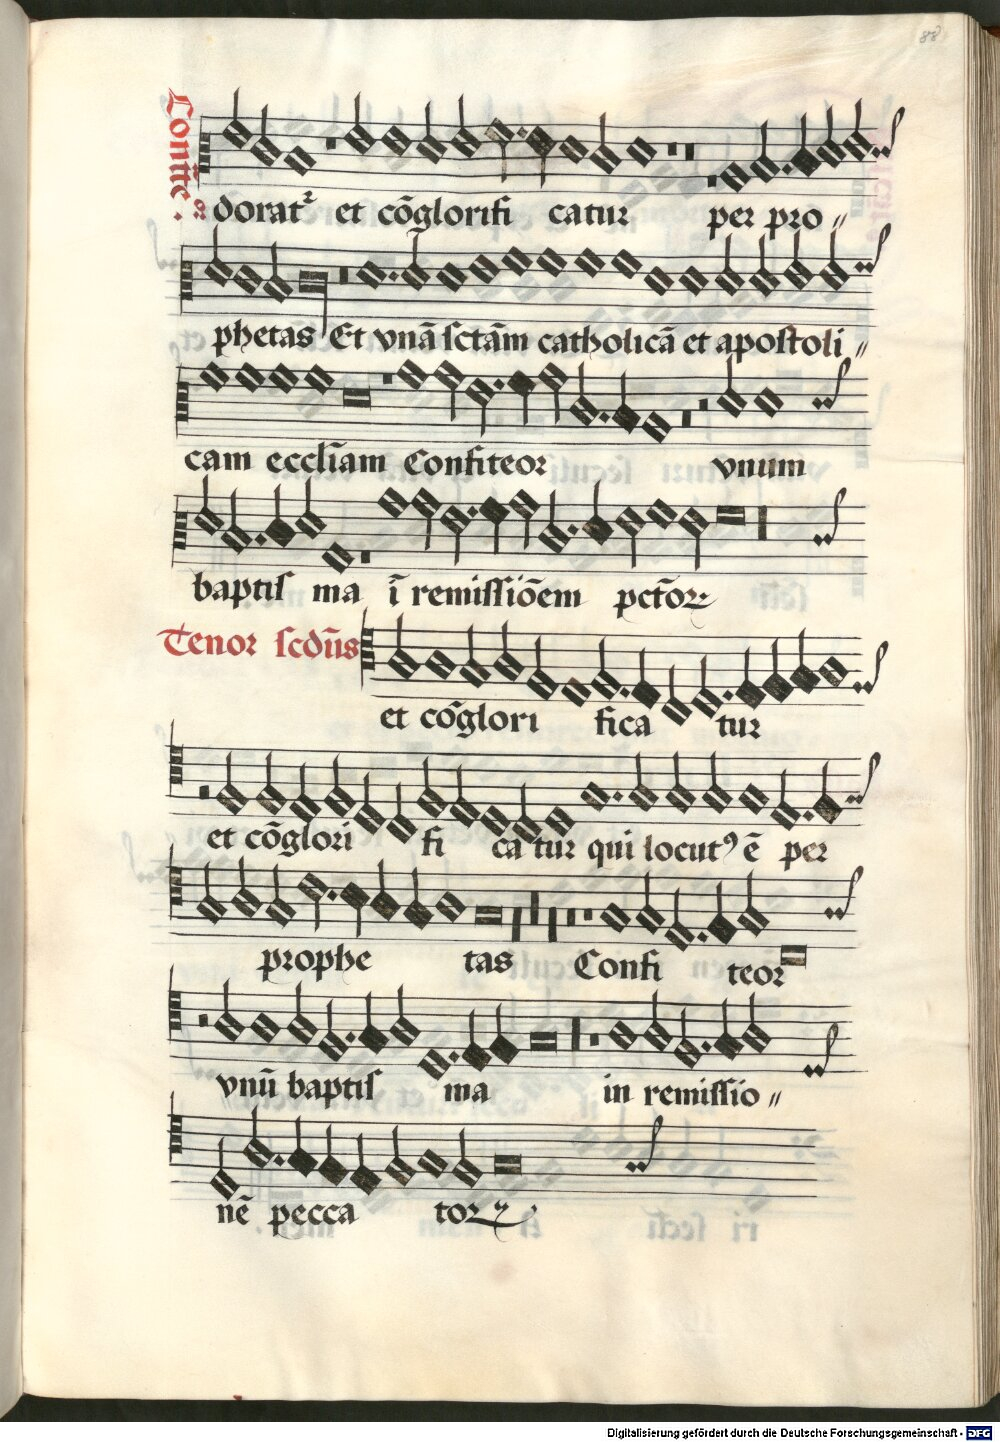 88
doratꝛ et cõglorifi catur per pro〃
phetas Et vnã sctãm catholicã et apostoli〃
cam eccliam Confiteor vnum
baptis ma ĩ remissiõem pctoꝝ
Tenor scdũs
et cõglori fica tur
et cõglori fi ca tur qui locutꝰ ẽ per
prophe tas Confi teor
vnũ baptis ma in remissio〃
nẽ pecca toꝝ
Digitalisierung gefördert durch die Deutsche Forschungsgemeinschaft - DFG